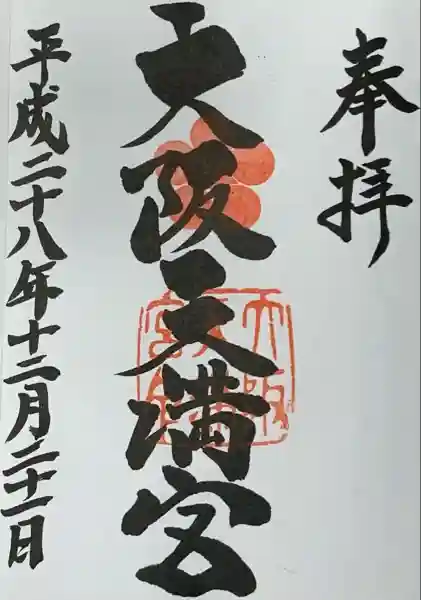 奉拝
大阪天満宮
平成二十八年十二月二十一日